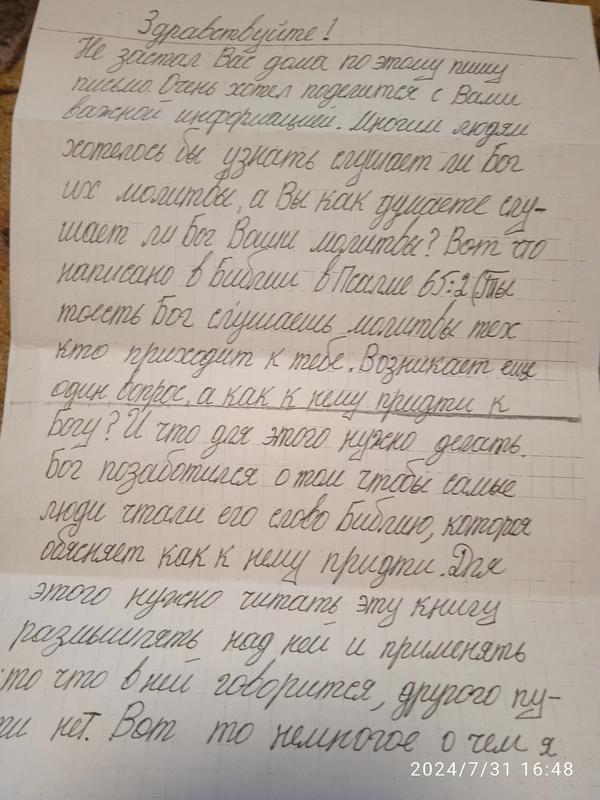 Здравствуйте!
Не застал Вас дома поэтому пишу
письмо. Очень хотел поделится с Вами
важной информацией. Многим людям
хотелось бы узнать слушает ли Бог
их молитвы, а Вы как думаете слу-
шает ли Бог Ваши молитвы? Вот что
написано в Библии в Псалме 65:2 (Ты
тоесть Бог слушаешь молитвы тех
кто приходит к тебе. Возникает еще
один вопрос, а как к нему придти к
Богу? И что для этого нужно делать.
Бог позаботился о том чтобы самые
люди чтали его слово Библию, которая
обясняет как к нему придти. Для
этого нужно читать эту книгу
размышлять над ней и применять
то что в ней говорится, другого пу-
ти нет. Вот то немногое о чем я
2024/7/31 16:48